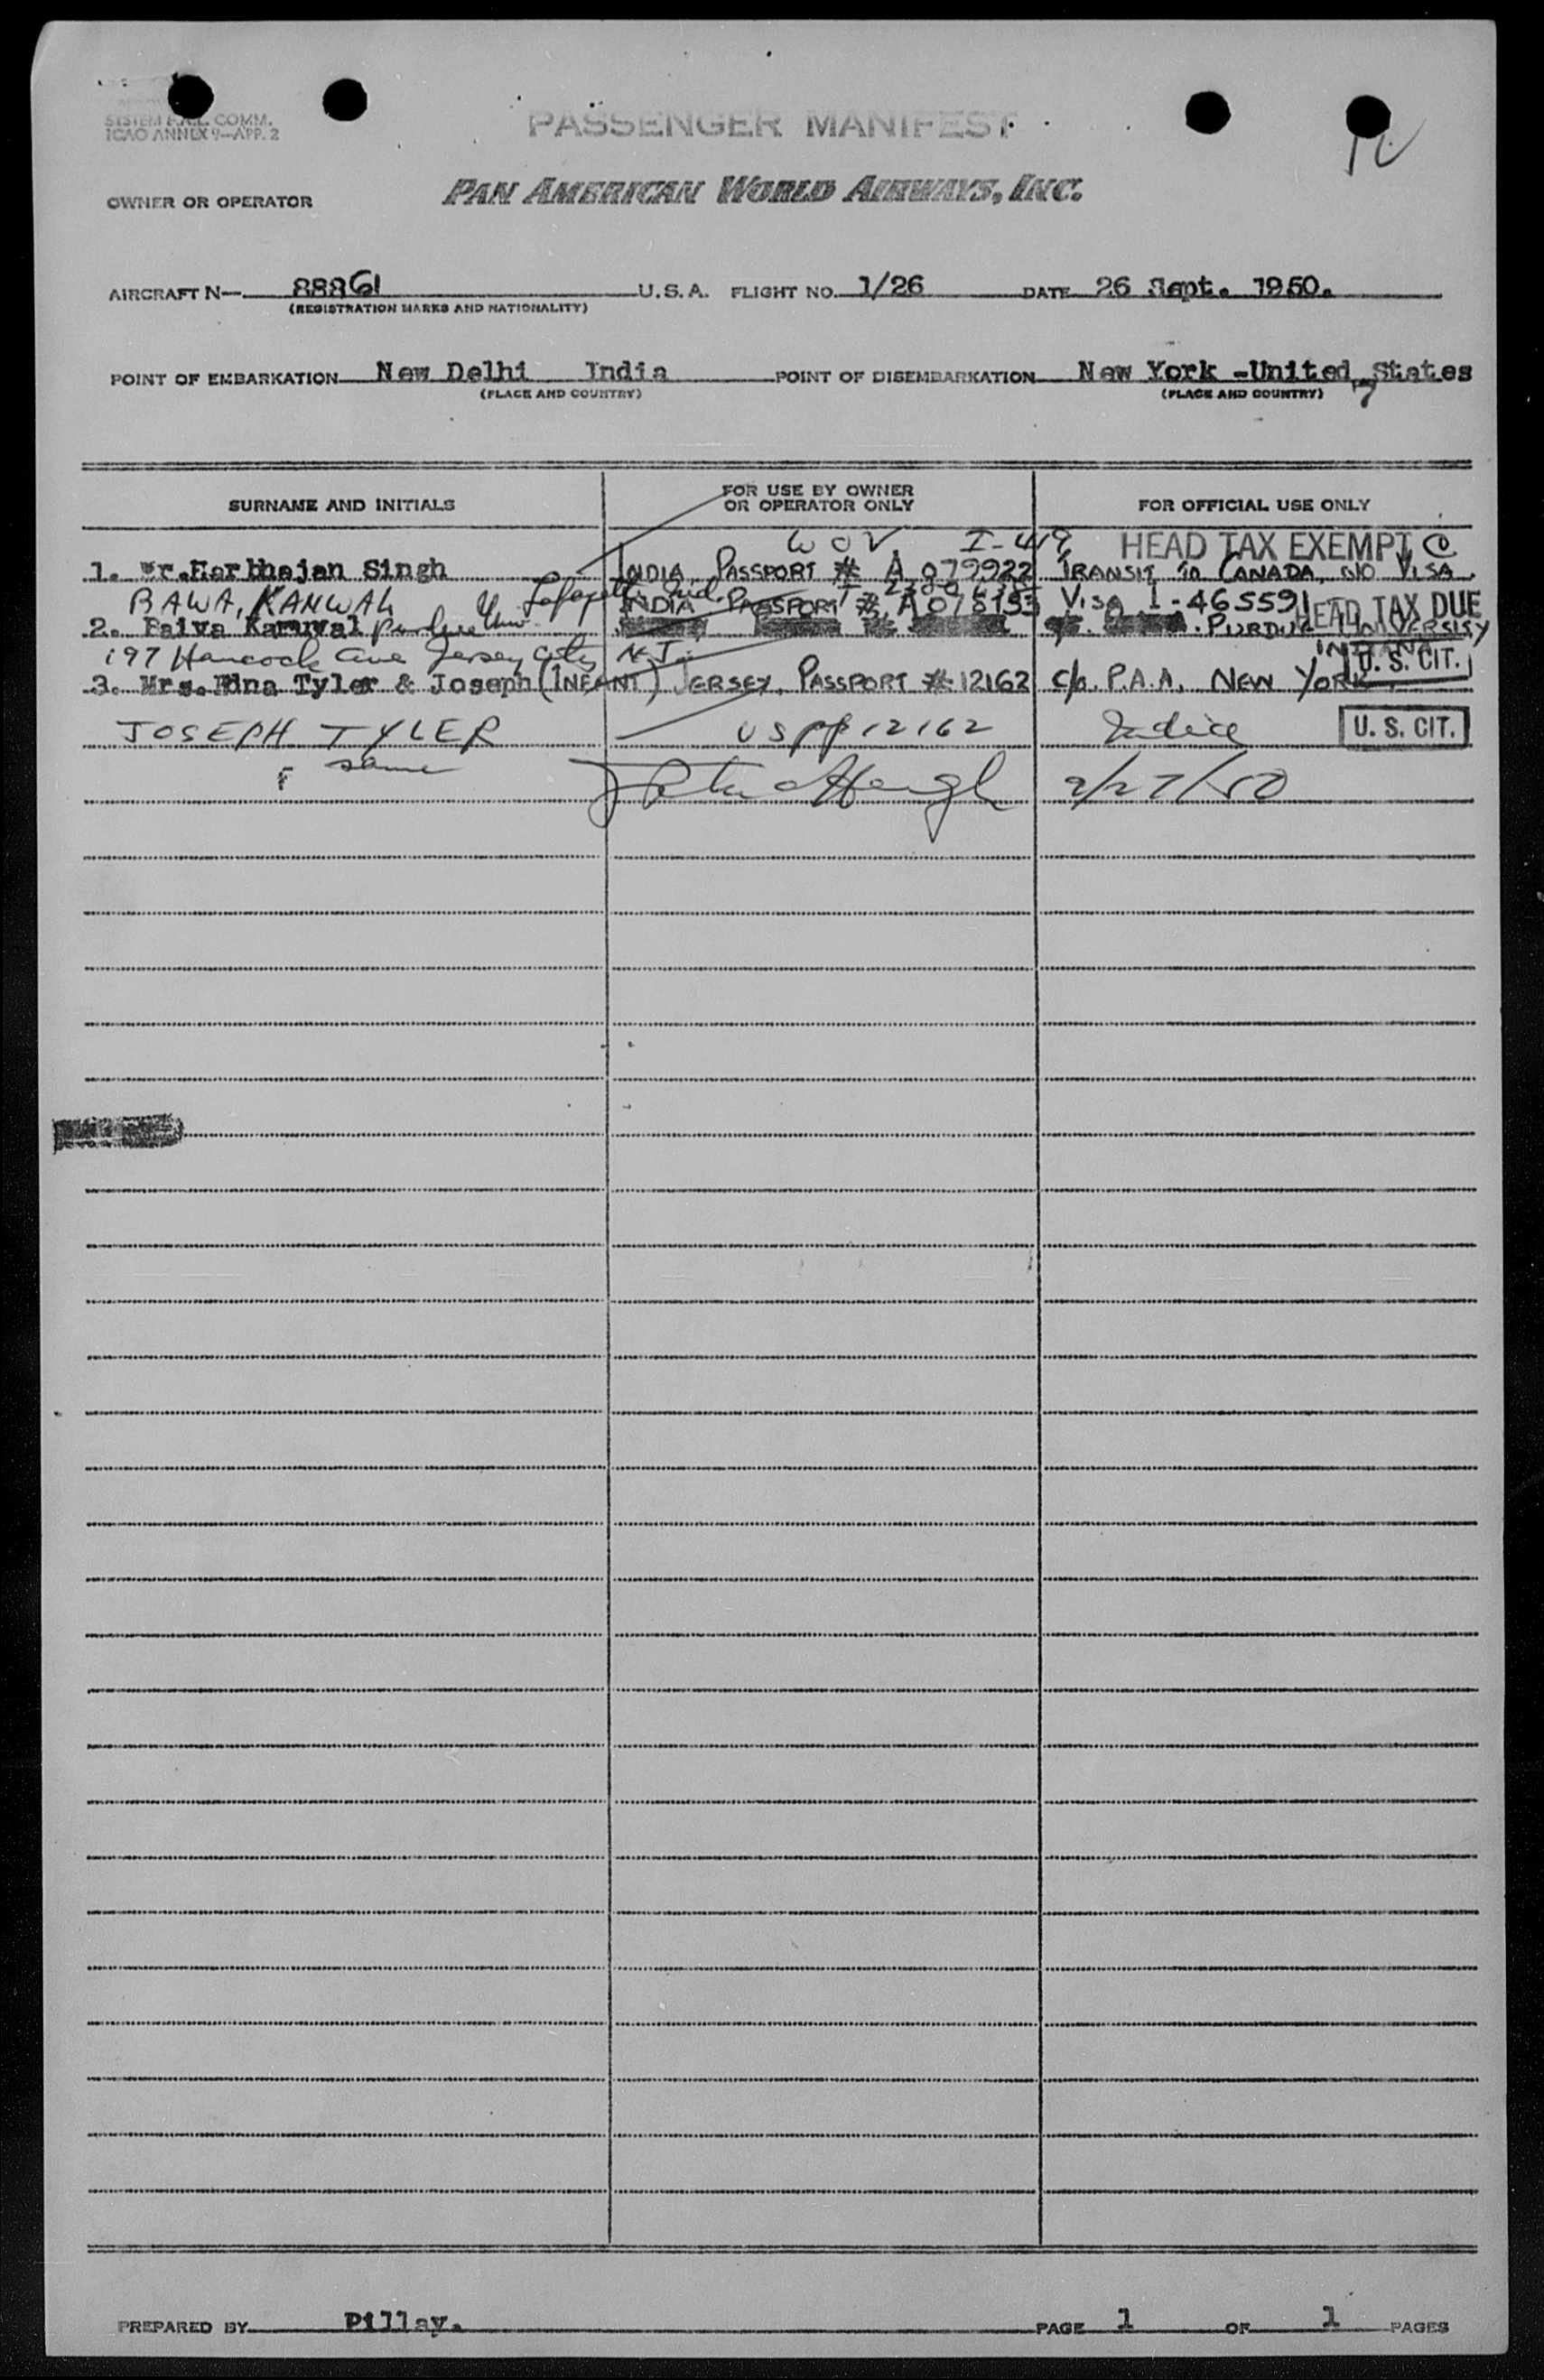 SYSTEM F.A.L. COMM.
ICAO ANNEX 9—APP. 2
PASSENGER MANIFEST
OWNER OR OPERATOR PAN AMERICAN WORLD AIRWAYS, INC.
AIRCRAFT N— 88861 U.S.A. FLIGHT NO. 1/26 DATE 26 Sept. 1950.
(REGISTRATION MARKS AND NATIONALITY)
POINT OF EMBARKATION New Delhi India POINT OF DISEMBARKATION New York -United States
(PLACE AND COUNTRY) (PLACE AND COUNTRY) 7
SURNAME AND INITIALS FOR USE BY OWNER OR OPERATOR ONLY FOR OFFICIAL USE ONLY
WOV I-419 HEAD TAX EXEMPT C
1. Mr.Harbhajan Singh INDIA, PASSPORT # A 079922 TRANSIT TO CANADA, NO VISA.
BAWA, KANWAL Lafayette Ind. INDIA PASSPORT # VISA I-465591 HEAD TAX DUE
2. Paiva Karnwal Purdue Univ. PURDUE UNIVERSISY
197 Hancock Ave Jersey City N.J. INDIANA U. S. CIT.
3. Mrs.Edna Tyler & Joseph (INFANT) JERSEY, PASSPORT # 12162 c/o P.A.A. NEW YORK
JOSEPH TYLER US pp 12162 U. S. CIT.
same 9/27/50
PREPARED BY Pillay. PAGE 1 OF 1 PAGES